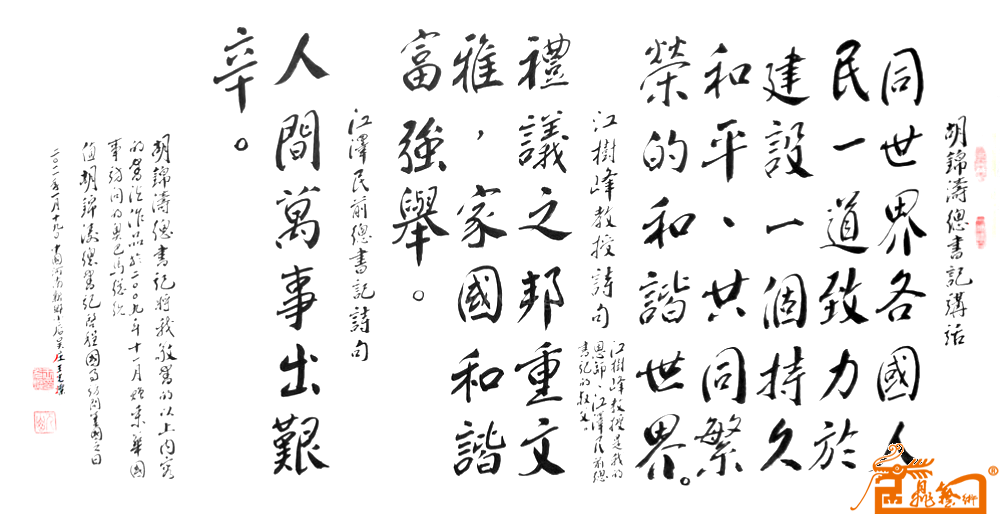 胡錦濤總書記講話
同世界各國人
民一道致力於
建設一個持久
和平、共同繁
榮的和諧世界。
江樹峰教授詩句
江樹峰教授是我的
恩師、江澤民前總
書記的叔父。
禮議之邦重文
雅，家國和諧
富強舉。
江澤民前總書記詩句
人間萬事出艱
辛。
胡錦濤總書記將我敬書的以上內容
的書法作品於二00九年十一月贈來華國
事訪問的奧巴馬總統
值胡錦濤總書記啟程國事訪問美國之日
二0一一年一月十九日